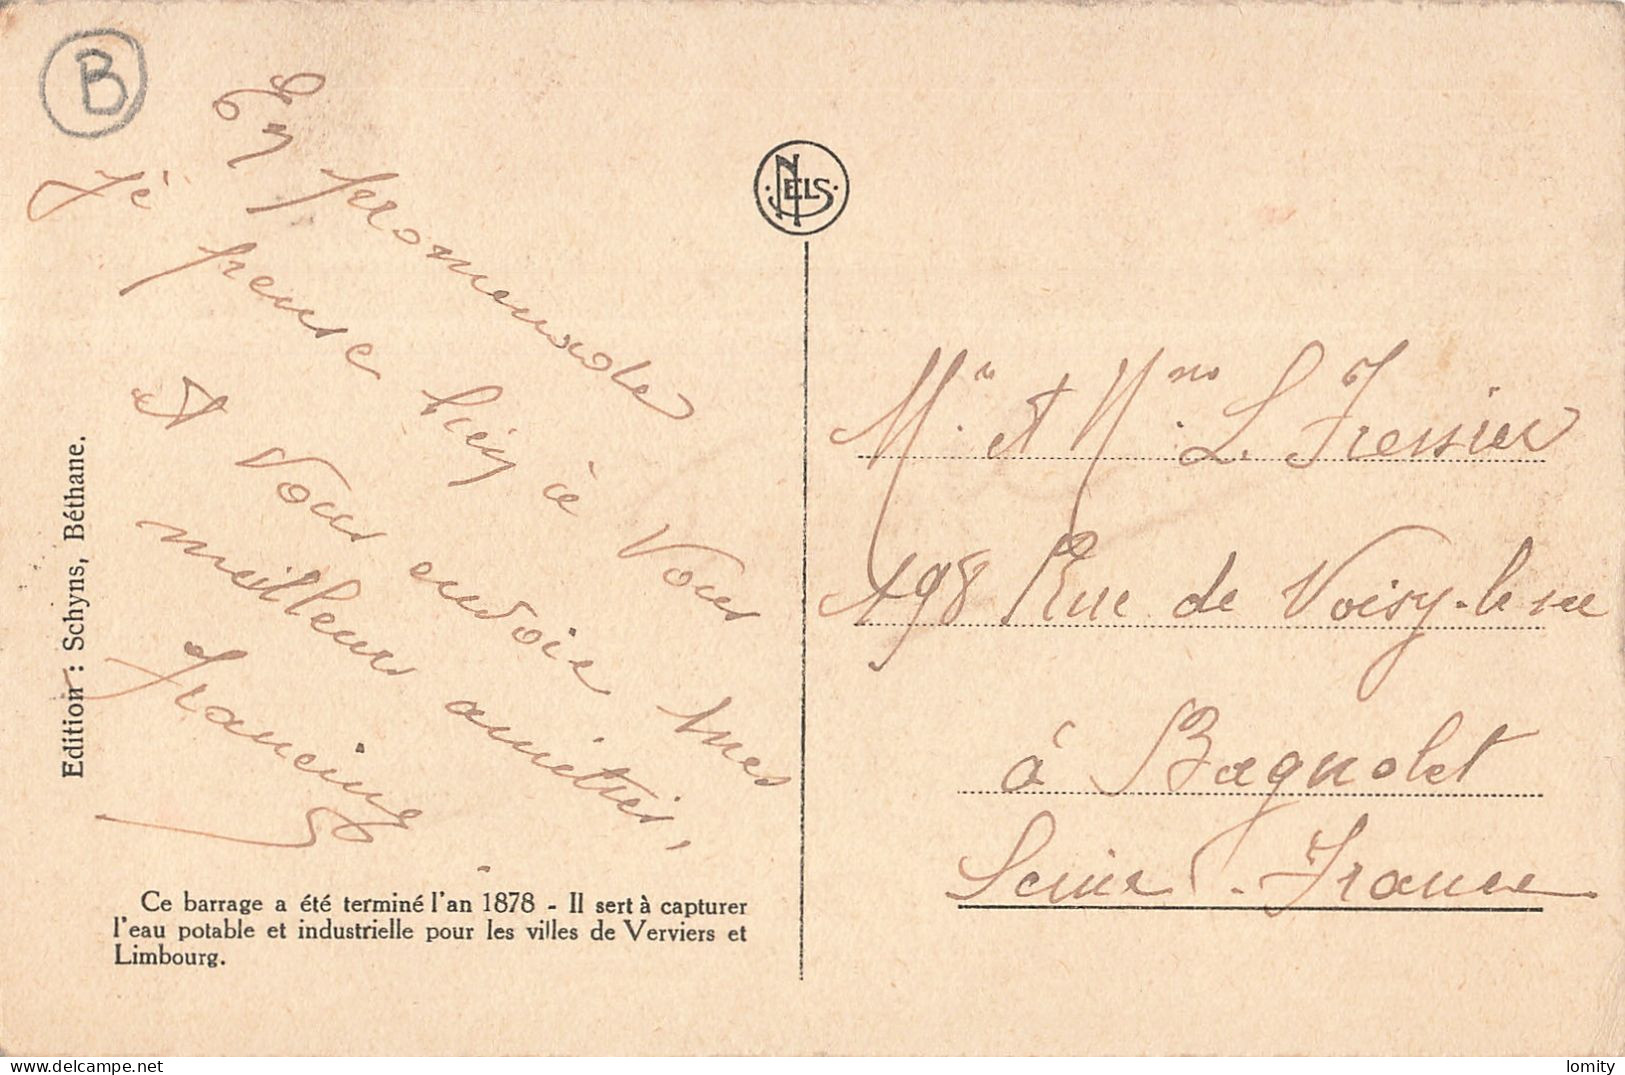 B
En promenade
je pense bien à Vous
et Vous envoie mes
meilleurs amitiés,
Francine
Edition : Schyns, Béthane.
Ce barrage a été terminé l'an 1878 - Il sert à capturer
l'eau potable et industrielle pour les villes de Verviers et
Limbourg.
NELS
Mr. et Mme. L.
198 Rue de Noisy-le-sec
à Bagnolet
Seine. France
lomity